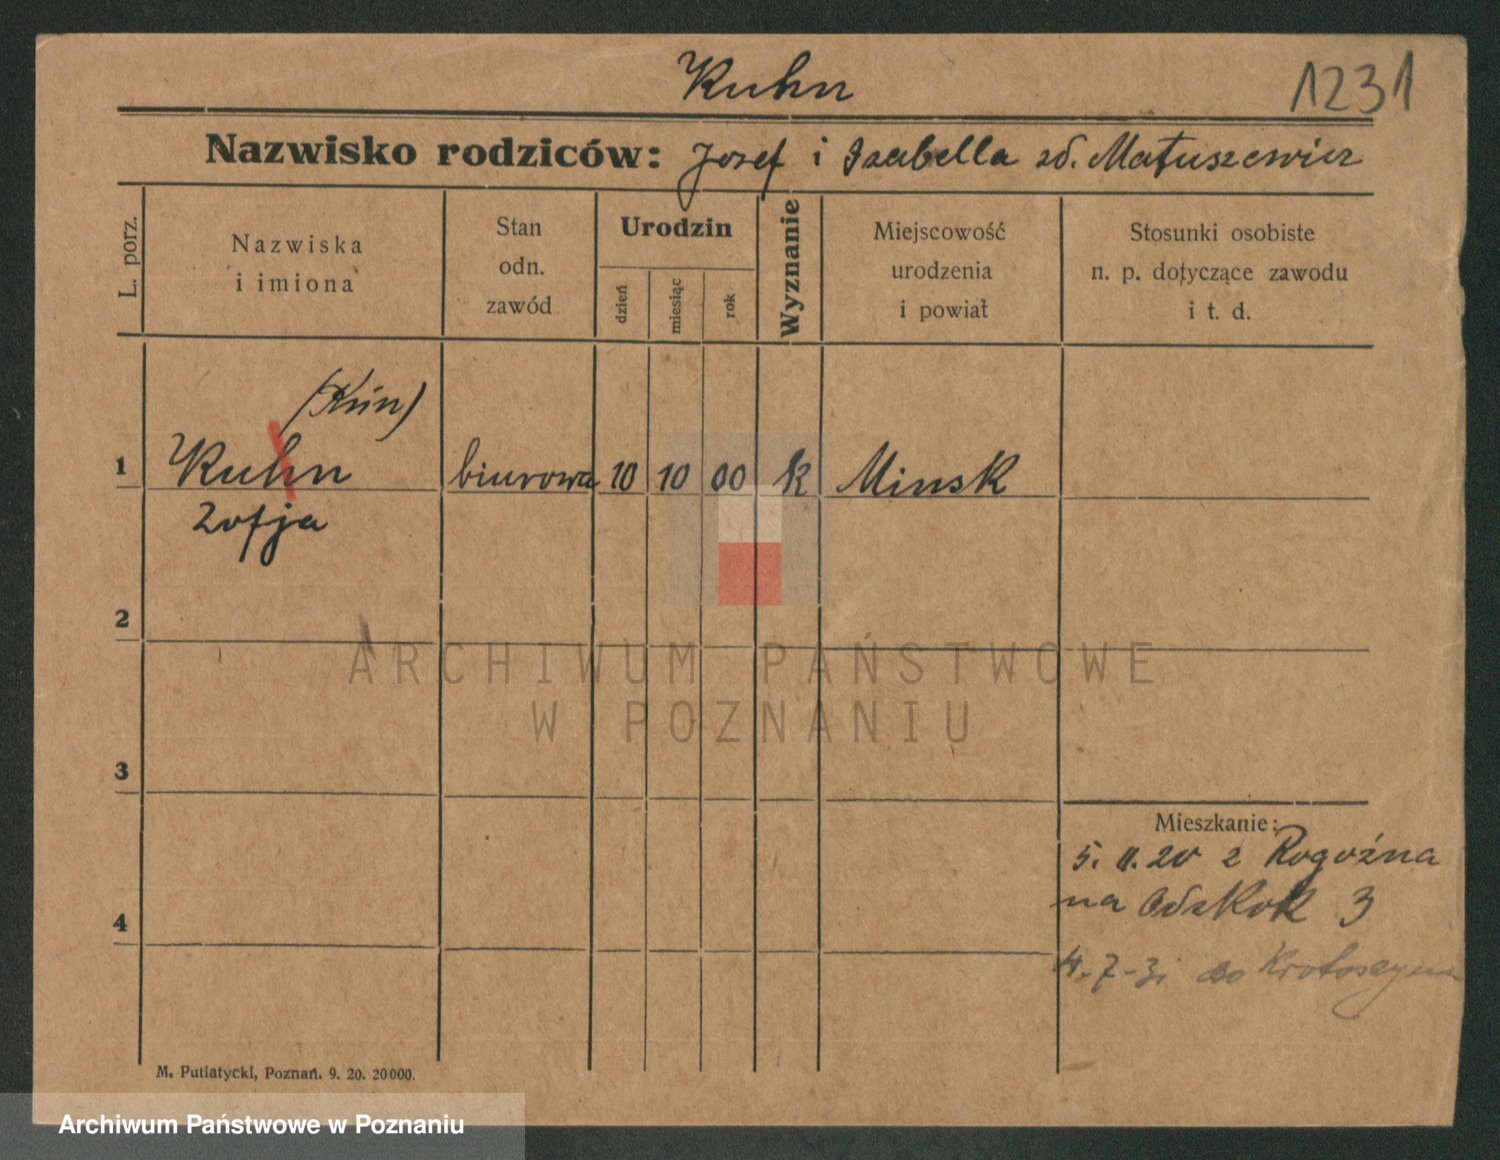 Kuhn
1231
Nazwisko rodziców: Josef i Izabella zd. Matuszewicz
L. porz.
Nazwiska
i imiona
Stan
odn.
zawód
Urodzin
dzień
miesiąc
rok
Wyznanie
Miejscowość
urodzenia
i powiat
Stosunki osobiste
n. p. dotyczące zawodu
i t. d.
(Kún)
1 Kuhn biurowa 10 10 00 k Minsk
Zofja
2
ARCHIWUM PAŃSTWOWE
W POZNANIU
3
Mieszkanie:
5. 11. 20 z Rogoźna
na Odskok 3
4
4.-7-31 do Krotoszyna
M. Putiatycki, Poznań. 9. 20. 20000.
Archiwum Państwowe w Poznaniu